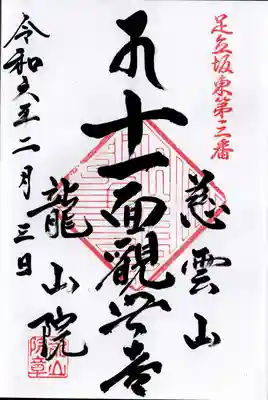 足立坂東第三番
慈雲山
十一面觀世音
龍山院
令和六年二月三日